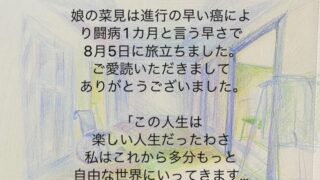 娘の菜見は進行の早い癌によ
り闘病1カ月と言う早さで
8月5日に旅立ちました。
ご愛読いただきまして
ありがとうございました。
「この人生は
楽しい人生だったわさ
私はこれから多分もっと
自由な世界にいってきます...